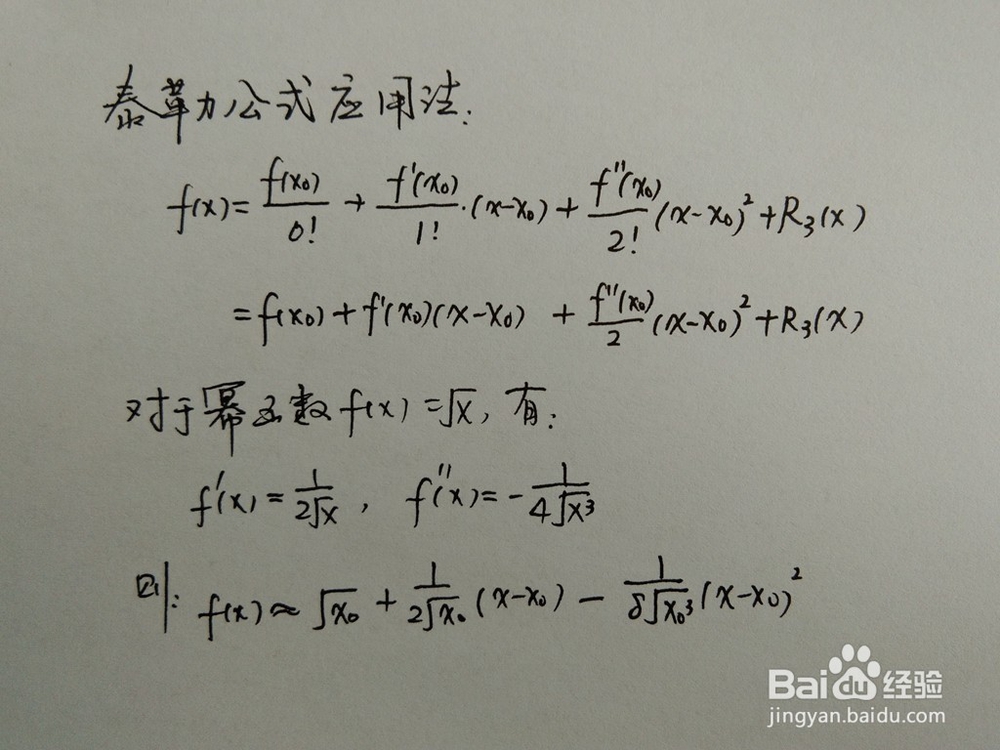 泰勒公式应用法:
f(x)=f(x₀)/0! + f'(x₀)/1!·(x-x₀)+f''(x₀)/2!(x-x₀)²+R₃(x)
=f(x₀)+f'(x₀)(x-x₀) + f''(x₀)/2(x-x₀)²+R₃(x)
对于幂函数f(x)=√x,有:
f'(x)=1/(2√x), f''(x)=-1/(4√x³)
则: f(x)≈√x₀+1/(2√x₀)(x-x₀)-1/(8√x₀³)(x-x₀)²
Baidu经验
jingyan.baidu.com